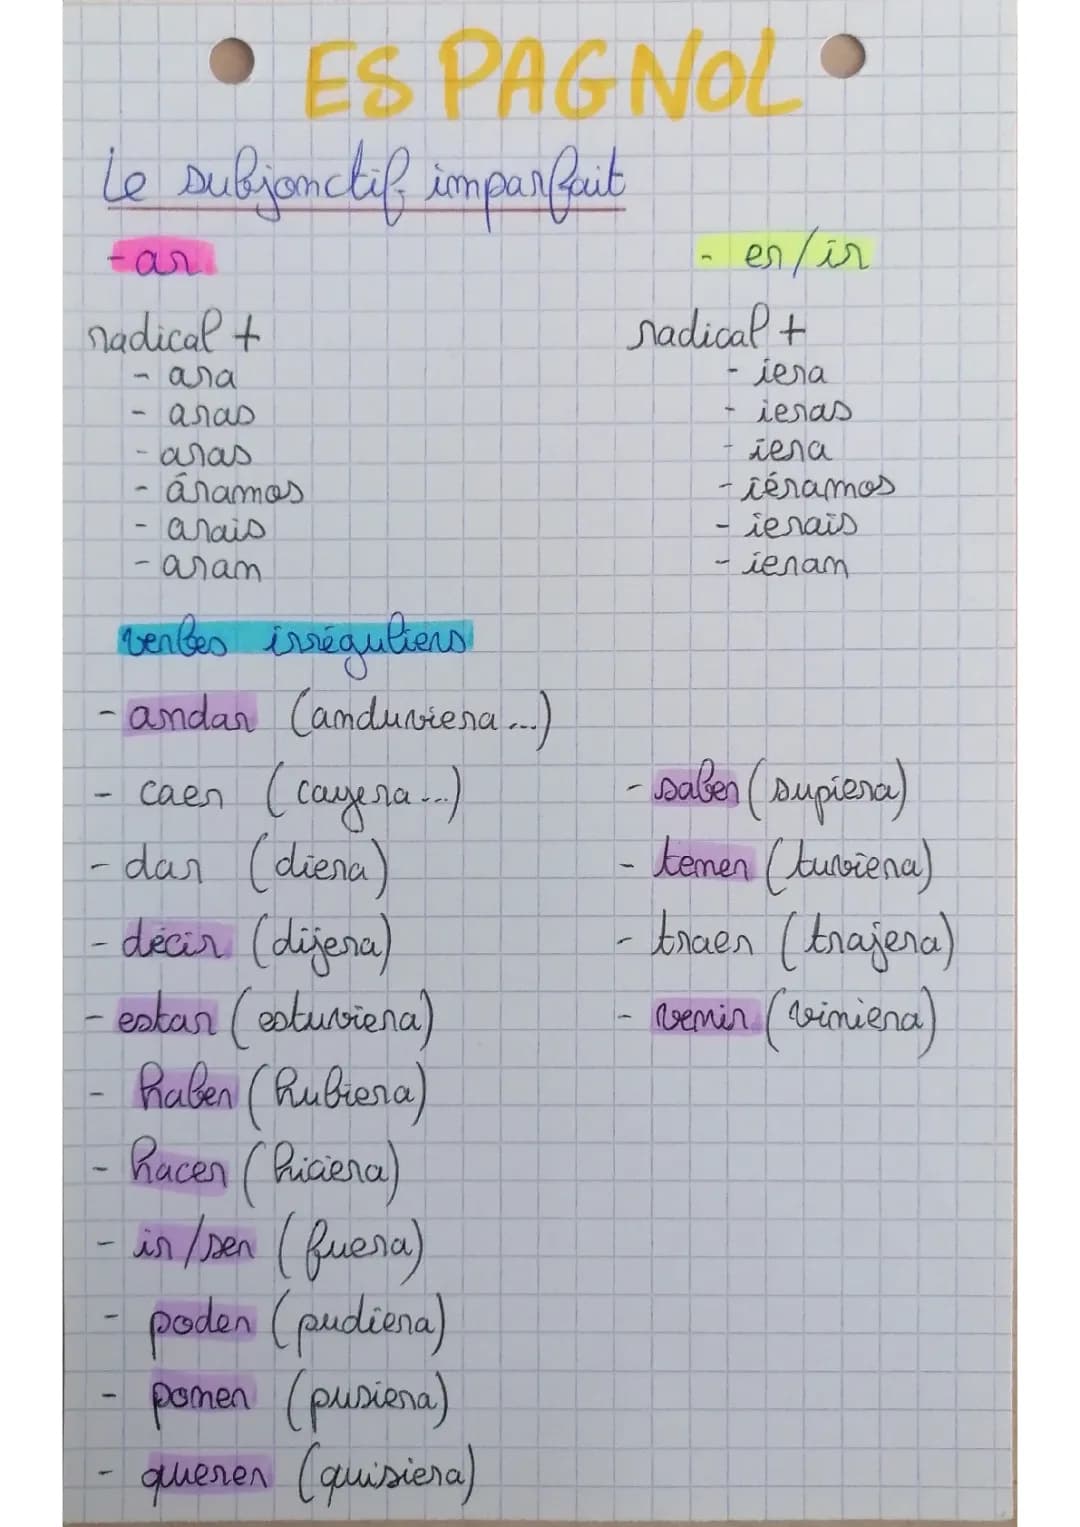 ESPAGNOL
Le subjonctif imparfait
-ar
radical +
- ara
- aras
- aras
- áramos
- arais
- aran
- er/ir
radical +
- iera
- ieras
- iera
- iéramos
- ierais
- ieran
verbes irréguliers
- andar (anduviera...)
- caer (cayera...)
- dar (diera)
- décir (dijera)
- estar (estuviera)
- haber (hubiera)
- hacer (hiciera)
- ir/ser (fuera)
- poder (pudiera)
- poner (pusiera)
- querer (quisiera)
- saber (supiera)
- tener (tuviera)
- traer (trajera)
- venir (viniera)